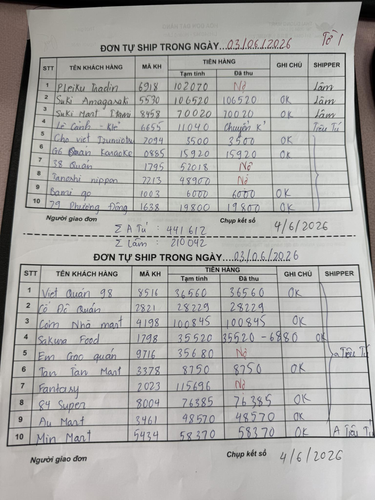 Tờ 1
ĐƠN TỰ SHIP TRONG NGÀY...03/06/2026
STT TÊN KHÁCH HÀNG MÃ KH TIỀN HÀNG GHI CHÚ SHIPPER
Tạm tính Đã thu
1 Pleiku Tradin 6918 102070 Nợ Lâm
2 Suki Amagasaki 5590 106520 106520 OK Lâm
3 Suki Mart 8958 70020 70020 OK Lâm
4 Lê Cảnh 6655 11040 Chuyển K' A Tú
5 Cho viet 2094 3500 3500 OK
6 G6 Quan Karaoke 0885 15920 15920 OK
7 38 Quán 1795 52018 Nợ
8 nippon 7213 48900 Nợ
9 Bami go 1003 6000 6000 OK
10 79 Phương Đông 1638 19800 19800 OK
Người giao đơn Chụp kết số 4/6/2026
Σ A Tú : 441 612
Σ Lâm : 210 042
ĐƠN TỰ SHIP TRONG NGÀY...03/06/2026
STT TÊN KHÁCH HÀNG MÃ KH TIỀN HÀNG GHI CHÚ SHIPPER
Tạm tính Đã thu
1 Việt Quán 98 8516 36560 36560 OK
2 Cố Đô Quán 2821 28229 28229
3 Cóm Nhà mart 4198 100845 100845 OK
4 Sakura Food 1798 35520 35520 -6980 OK
5 Em Gac quán 9716 35680 Nợ
6 Tan Tan Mart 3378 8750 8750 OK
7 Fantasy 2023 115696 Nợ
8 84 Super 8004 76385 76385 OK
9 Au Mart 3461 48570 48570 OK
10 Min Mart 5434 58370 58370 OK A Tú
Người giao đơn Chụp kết số 4/6/2026